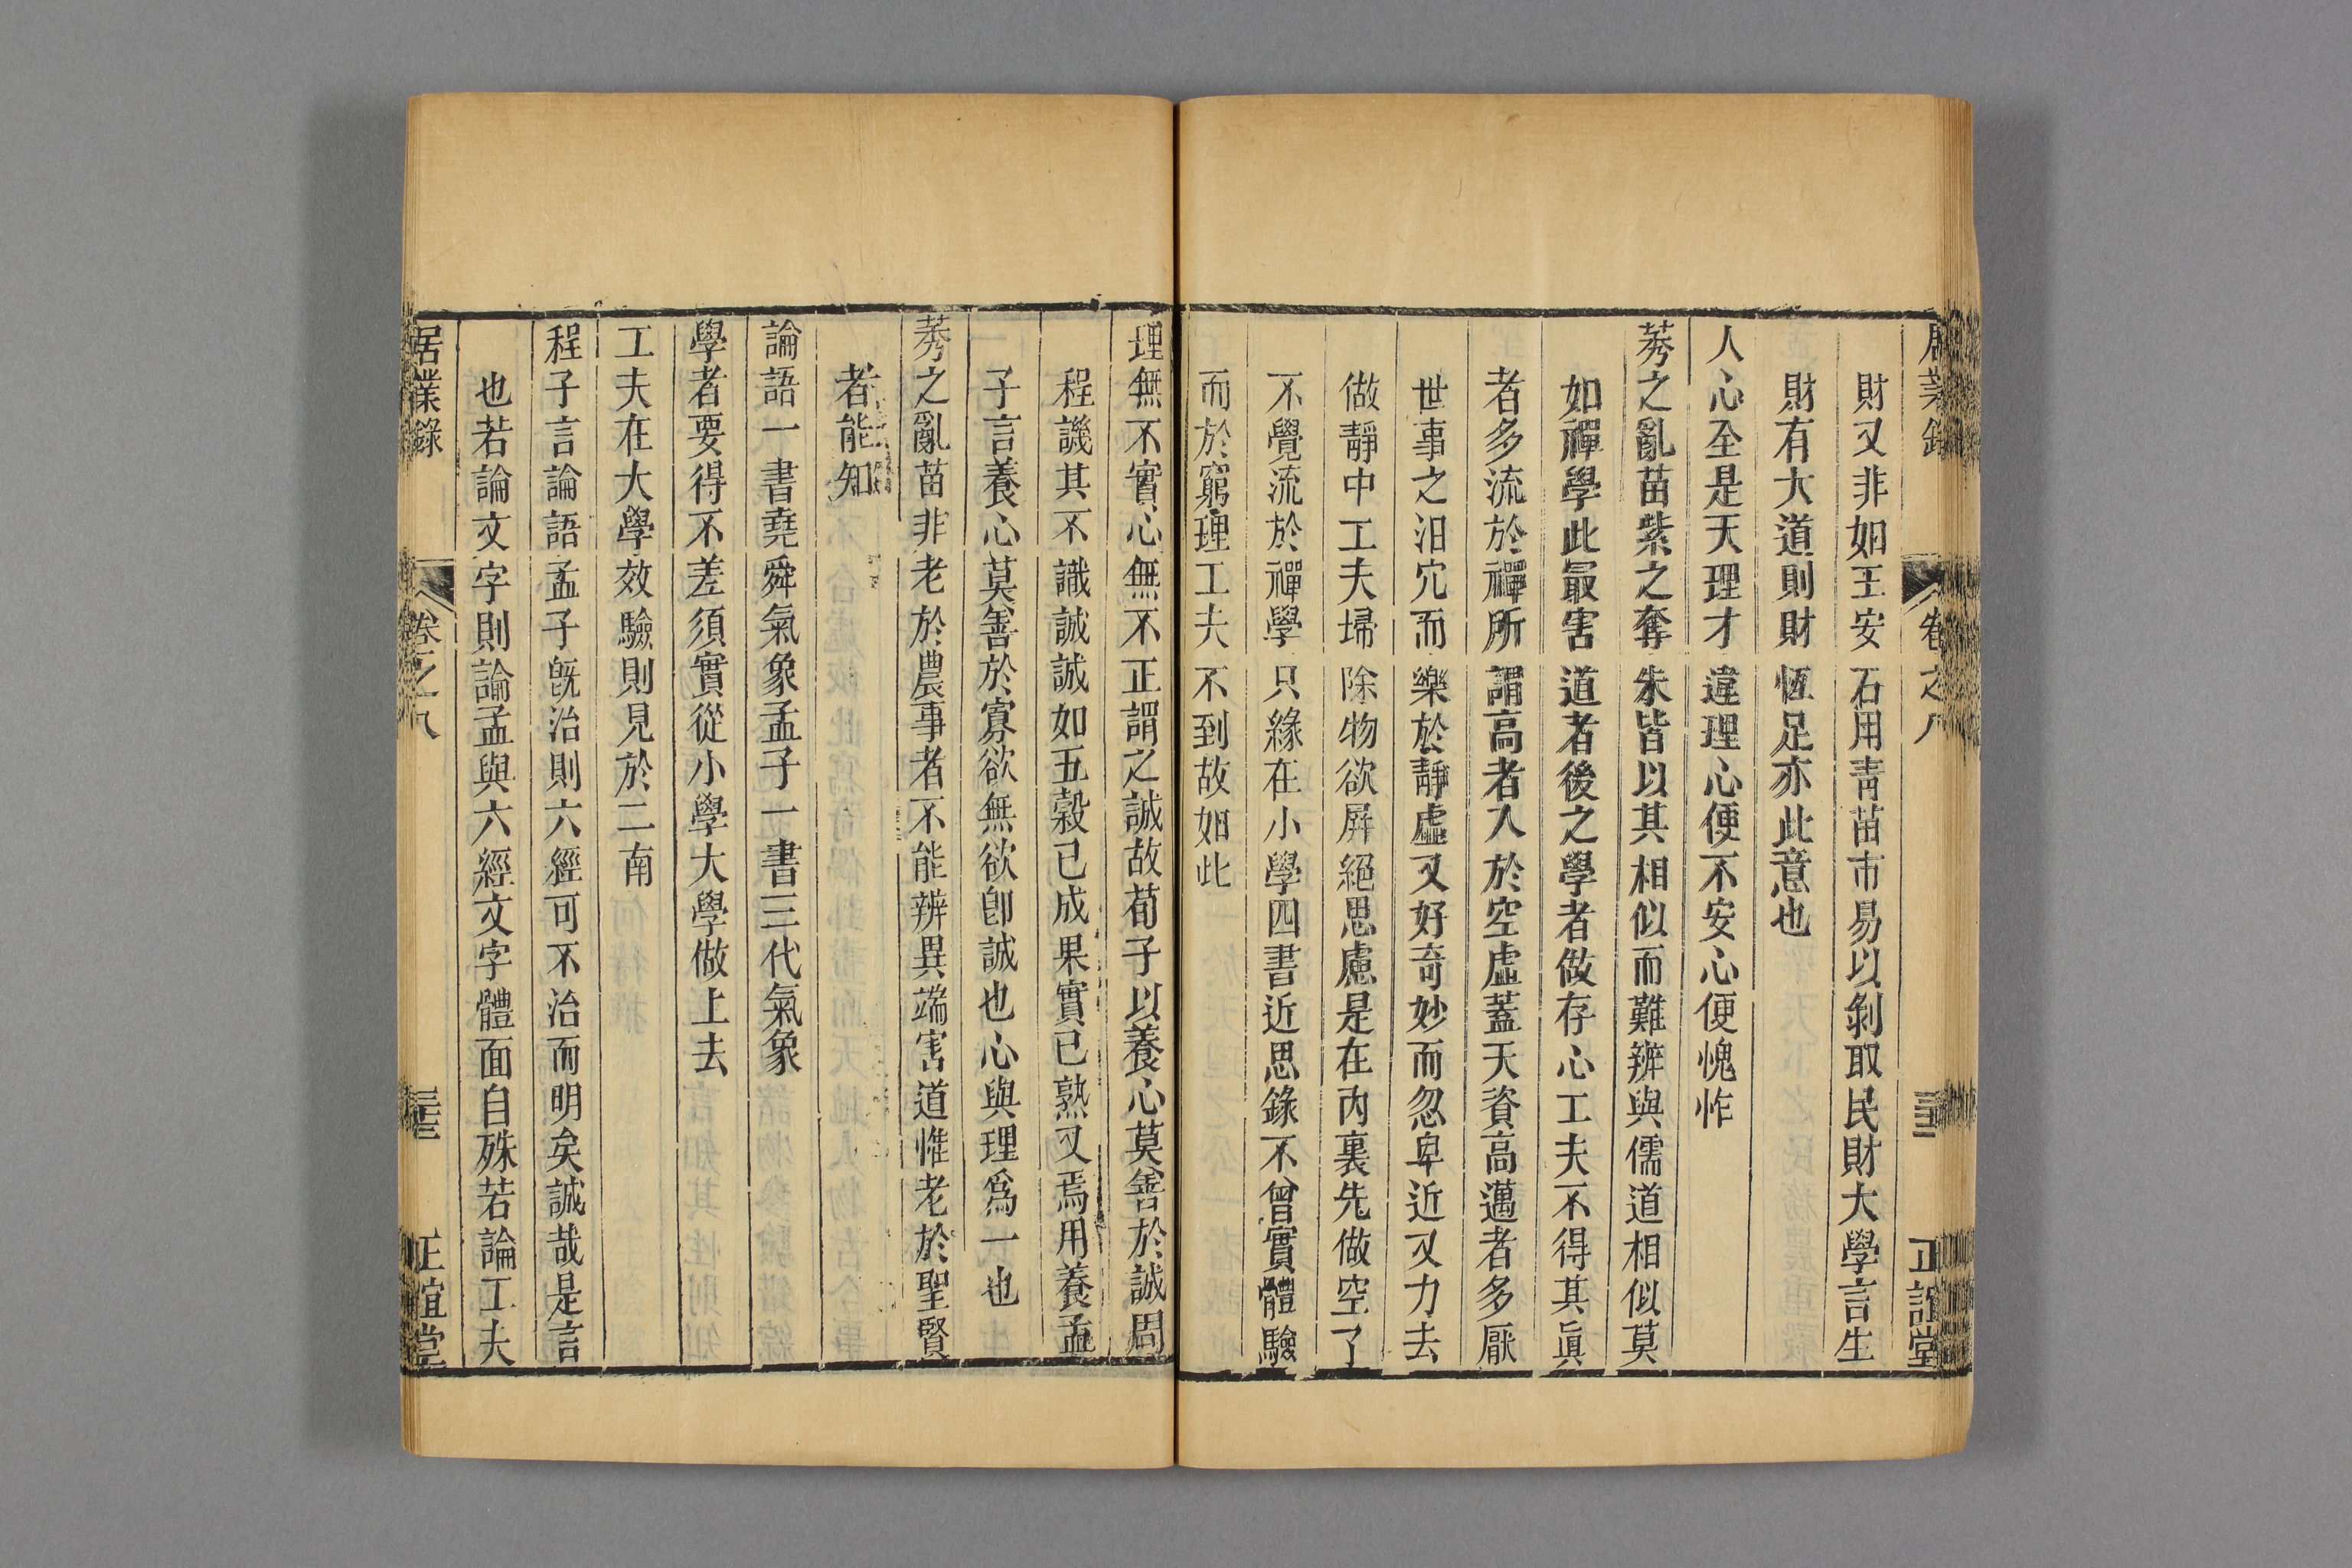 居業錄 卷之八 正誼堂
財又非如王安石用靑苗市易以剝取民財大學言生
財有大道則財恆足亦此意也
人心至是天理才違理心便不安心便愧怍
莠之亂苗紫之奪朱皆以其相似而難辨與儒道相似莫
如禪學此最害道者後之學者做存心工夫不得其眞
者多流於禪所謂高者入於空虛蓋天資高邁者多厭
世事之汨冗而樂於靜虛又好奇妙而忽卑近又力去
做靜中工夫埽除物欲屛絕思慮是在內裏先做空了
不覺流於禪學只緣在小學四書近思錄不曾實體驗
而於窮理工夫不到故如此
理無不實心無不正謂之誠故荀子以養心莫善於誠周
程譏其不識誠誠如五穀已成果實已熟又焉用養孟
子言養心莫善於寡欲無欲卽誠也心與理爲一也
莠之亂苗非老於農事者不能辨異端害道惟老於聖賢
者能知
論語一書堯舜氣象孟子一書三代氣象
學者要得不差須實從小學大學做上去
工夫在大學效驗則見於二南
程子言論語孟子旣治則六經可不治而明矣誠哉是言
也若論文字則論孟與六經文字體面自殊若論工夫
居業錄 卷之八 正誼堂